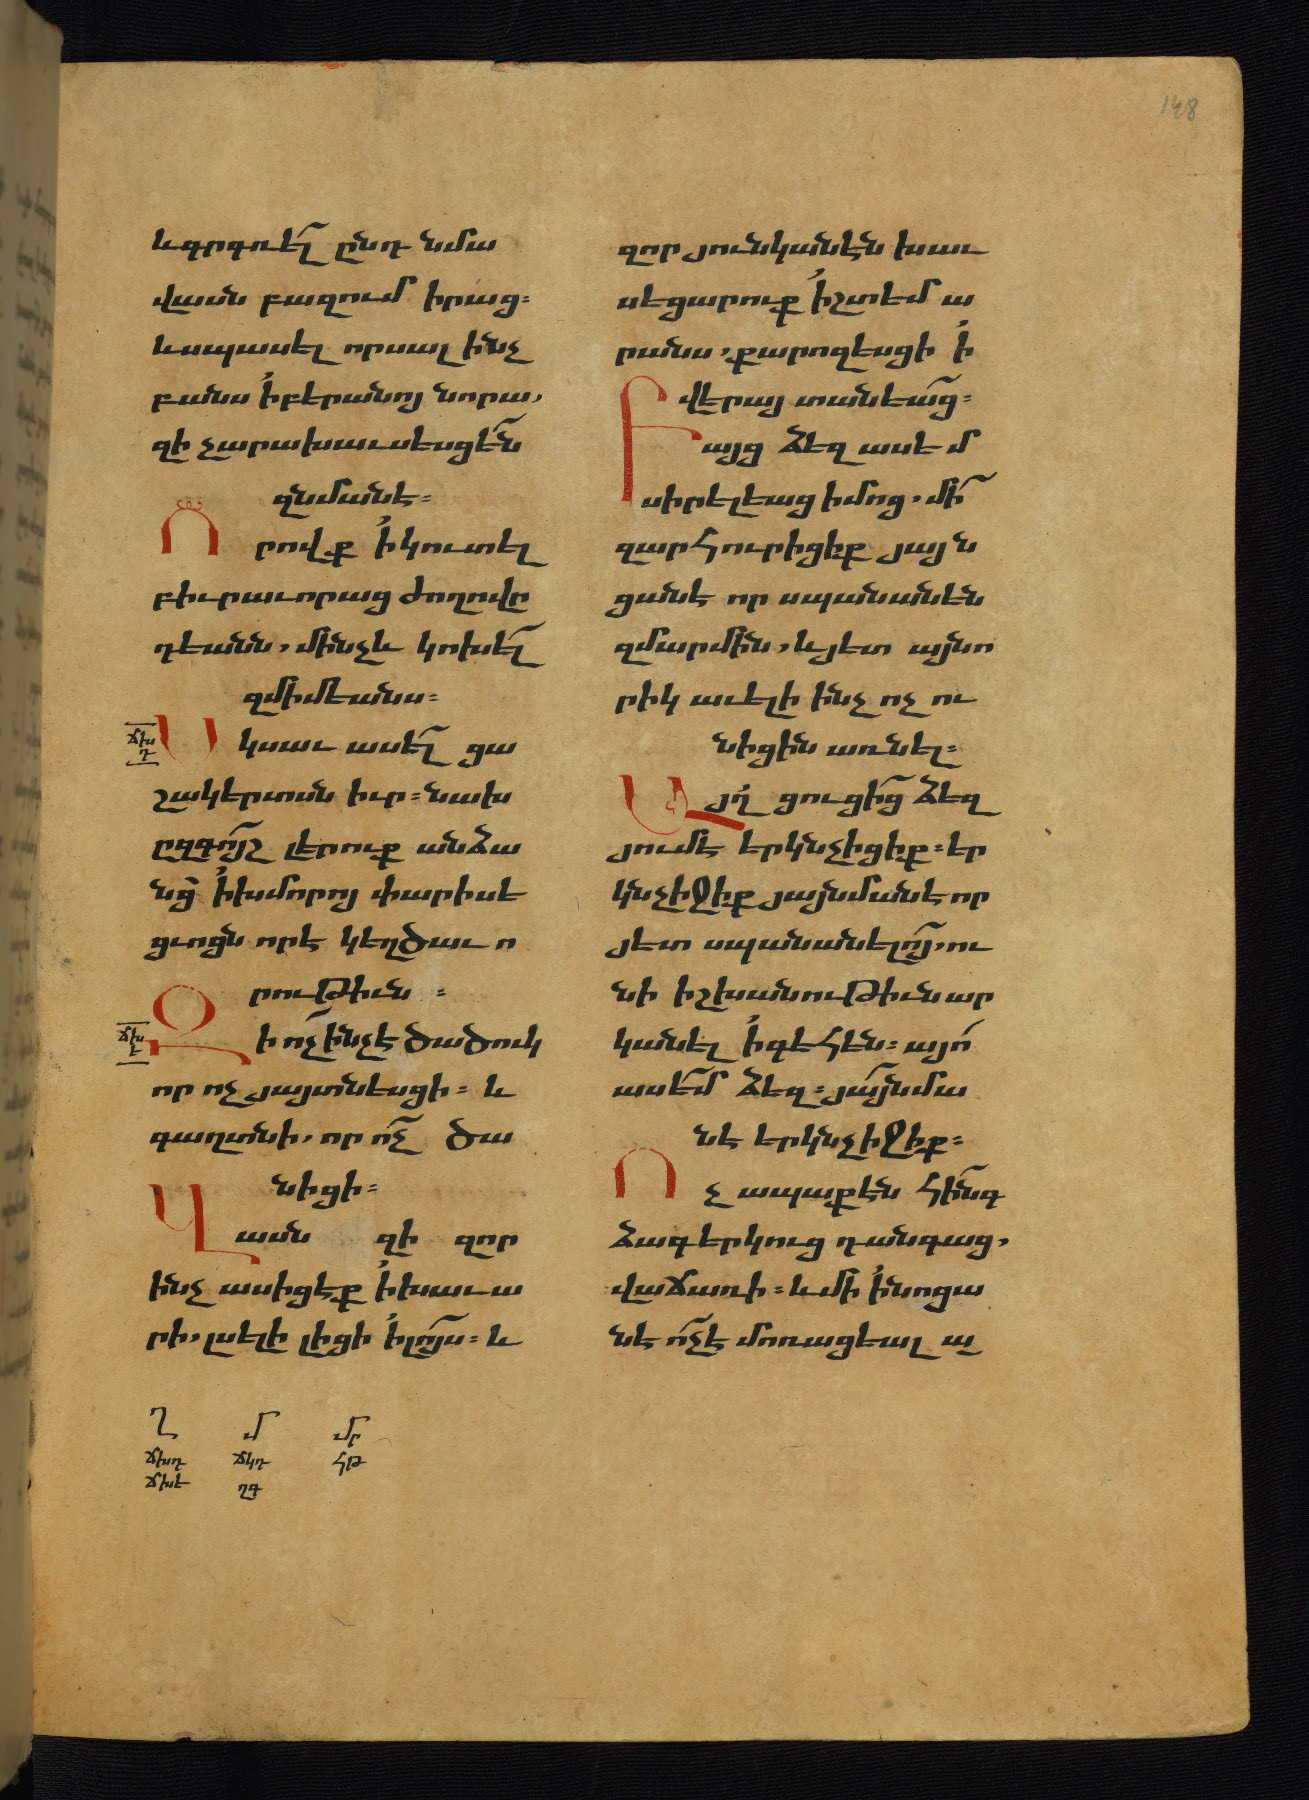 148
եւգրգռե՟լ ընդ նմա
վասն բազում իրաց։
եւսպասել որսալ ինչ
բանս ՛ի բերանոյ նորա,
զի չարախաւսեսցե՟ն
զնմանէ։
Որովք ՛ի կուտել
բիւրաւորաց ժողովր
դեանն, մինչև կոխե՟լ
զմիմեանս։
ճխդ
Սկսաւ ասե՟լ ցա
շակերտսն իւր։ նախ
ըզգո՟յշ լերուք անձա
նց՟ ՛ի խմորոյ փարիսե
ցւոցն որ է կեղծաւո
րութիւն։
ճխե
Զի ո՟չ ինչ է ծածուկ
որ ոչ յայտնեսցի։ և
գաղտնի, որ ո՟չ ծա
նիցի։
Վասն զի զոր
ինչ ասիցէք ՛ի խաւա
րի, լսելի լիցի ՛ի լո՟յս։ և
զոր յունկանէն խաւ
սեցարուք ՛ի շտեմա
րանս, քարոզեսցի ՛ի
վերայ տանեա՟ց։
Բայց ձեզ ասեմ
սիրելեաց իմոց, մի՟
զարհուրիցիք յայն
ցանէ որ սպանանեն
զմարմին, և յետ այնո
րիկ աւելի ինչ ոչ ու
նիցին առնել։
Այղ՟ ցուցի՟ց ձեզ
յումէ երկնչիցիք։ եր
կնչիջիք յայնմանէ որ
յետ սպանանելո՟յ, ու
նի իշխանութիւն ար
կանել ՛ի գեհեն։ այո՛
ասեմ ձեզ։ յա՟յնմա
նէ երկնչիջիք։
Ոչ ապաքէն հինգ
ձագ երկուց դանգաց,
վաճառի։ և մի ՛ի նոցա
նէ ո՟չ է մոռացեալ ա
ղ մ մր
ճխդ ճկդ հթ
ճխե ղգ